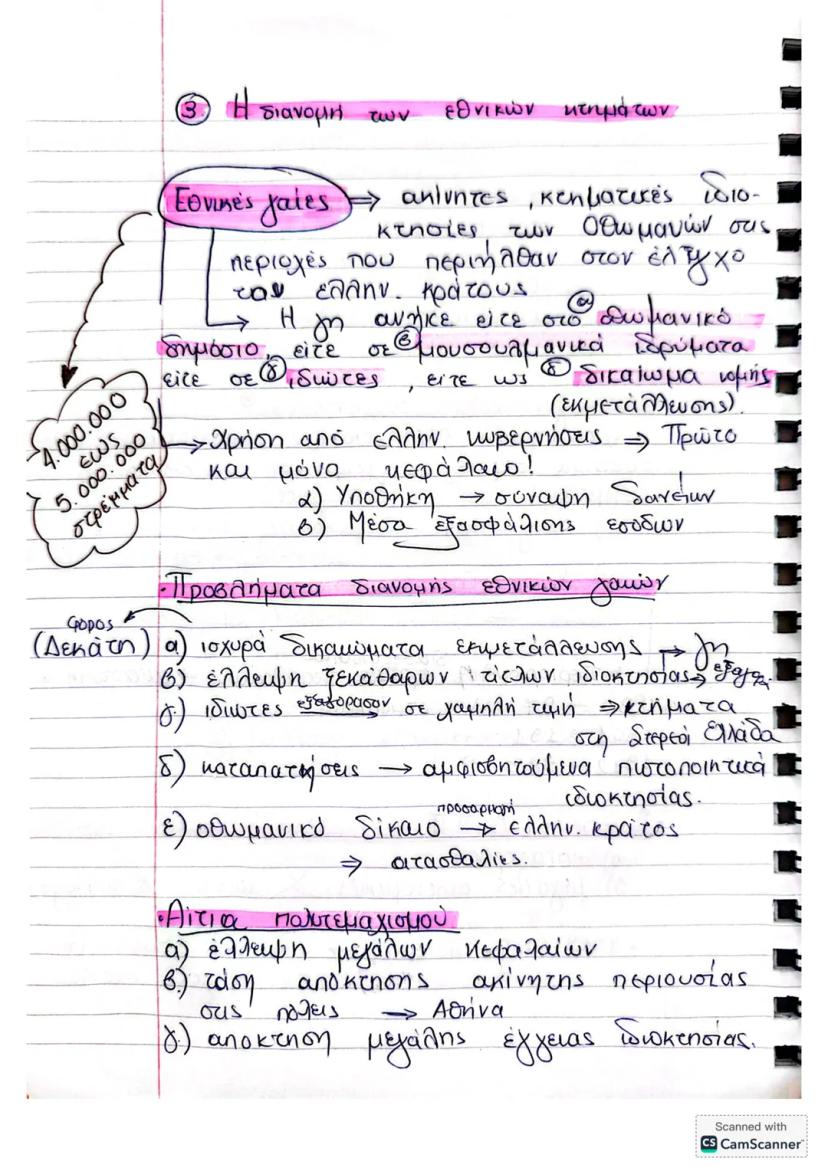 ③ Η διανομή των εθνικών κτημάτων
Εθνικές γαίες ⇒ ακίνητες, κτηματικές ιδιο-
κτησίες των Οθωμανών στις
περιοχές που περιήλθαν στον έλεγχο
του ελλην. κράτους
→ Η γη ανήκε είτε στο α οθωμανικό
δημόσιο, είτε σε β μουσουλμανικά ιδρύματα
είτε σε γ ιδιώτες, είτε ως δ δικαίωμα νομής
(εκμετάλλευσης).
4.000.000
εως
5.000.000
στρέμματα
→ Χρήση από ελλην. κυβερνήσεις ⇒ Πρώτο
και μόνο κεφάλαιο!
α) Υποθήκη → σύναψη δανείων
β) Μέσα εξασφάλισης εσόδων
• Προβλήματα διανομής εθνικών γαιών
φόρος
(Δεκάτη) α) ισχυρά δικαιώματα εκμετάλλευσης → γη
β) έλλειψη ξεκάθαρων τίτλων ιδιοκτησίας →
γ) ιδιώτες εξαγόρασαν σε χαμηλή τιμή ⇒ κτήματα
στη Στερεά Ελλάδα
δ) καταπατήσεις → αμφισβητούμενα πιστοποιητικά
ιδιοκτησίας.
προσαρμογή
ε) οθωμανικό δίκαιο → ελλην. κράτος
⇒ ατασθαλίες.
• Αίτια πολυτεμαχισμού
α) έλλειψη μεγάλων κεφαλαίων
β) τάση απόκτησης ακίνητης περιουσίας
στις πόλεις → Αθήνα
γ) αποκτηση μεγάλης έγγειας ιδιοκτησίας.
Scanned with
CS CamScanner